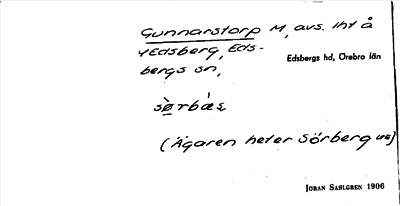 Gunnarstorp M, avs. lht å
YEdsberg, Eds-
bergs sn,
Edsbergs hd, Örebro län
sø̀rbás
(Ägaren heter Sörberg
JÖRAN SAHLGREN 1906